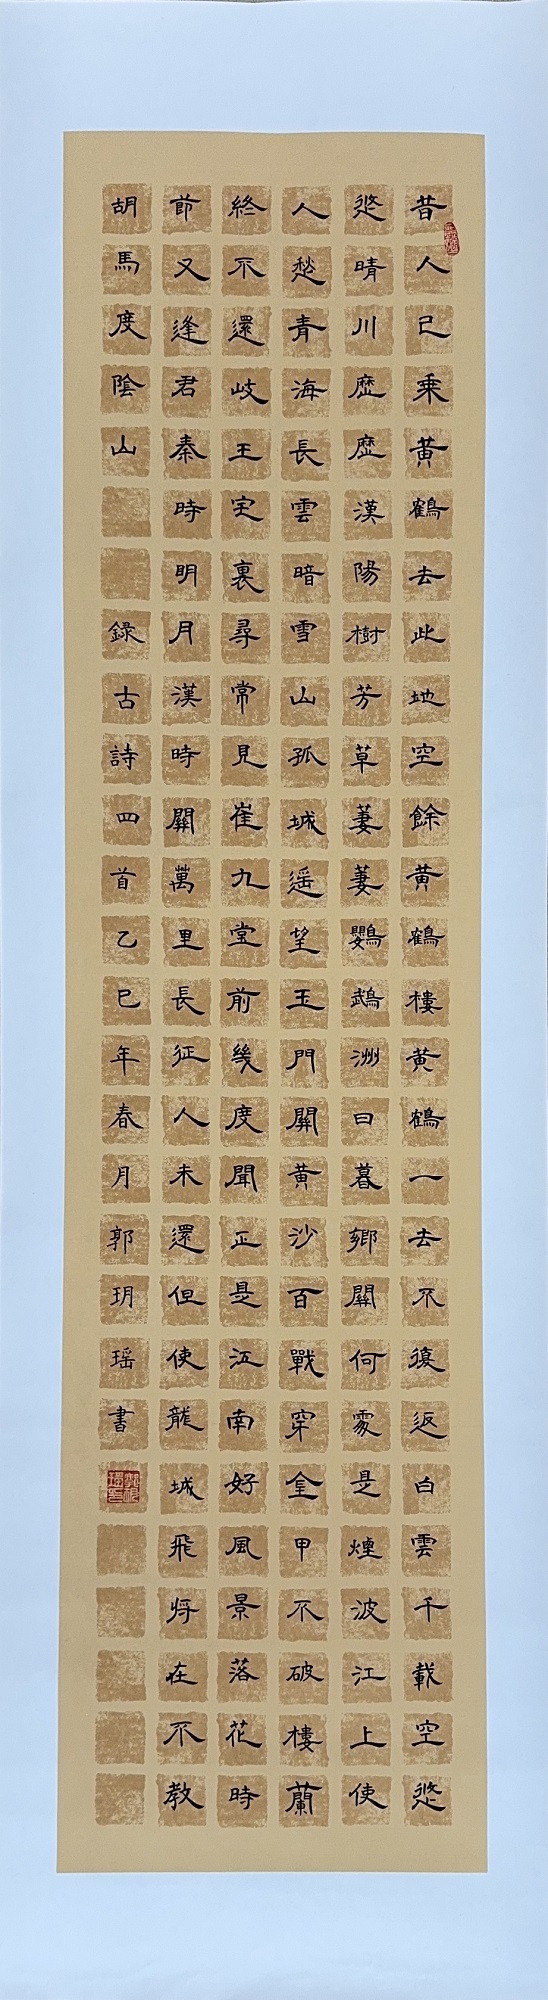 昔人已乘黃鶴去此地空餘黃鶴樓黃鶴一去不復返白雲千載空悠
悠晴川歷歷漢陽樹芳草萋萋鸚鵡洲日暮鄉關何處是煙波江上使
人愁青海長雲暗雪山孤城遥望玉門關黃沙百戰穿金甲不破樓蘭
終不還岐王宅裏尋常見崔九堂前幾度聞正是江南好風景落花時
節又逢君秦時明月漢時關萬里長征人未還但使龍城飛將在不教
胡馬度陰山 錄古詩四首乙巳年春月郭玥瑶書